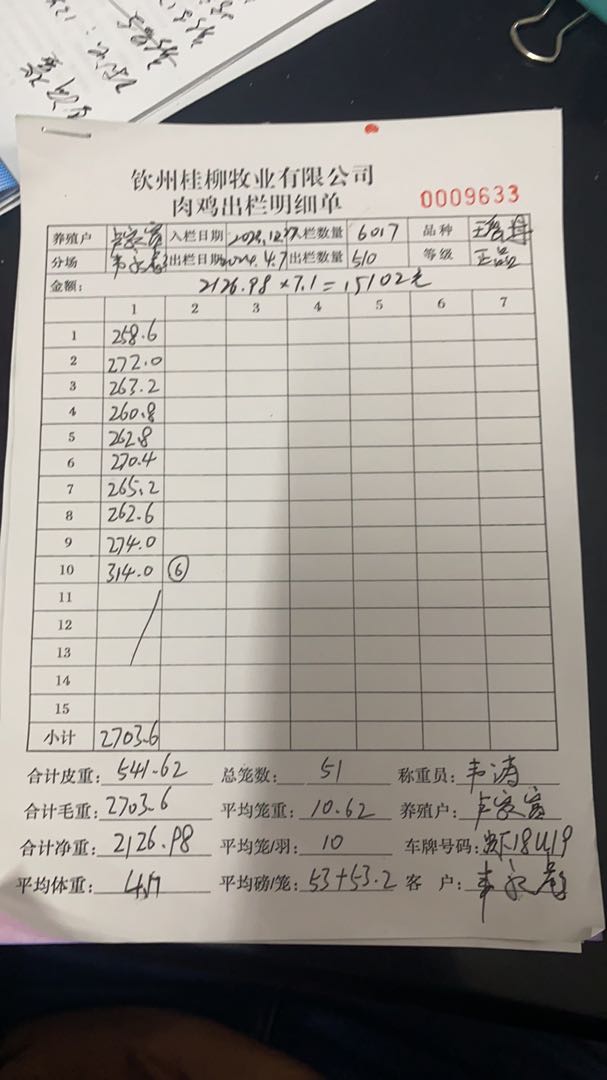 钦州桂柳牧业有限公司
肉鸡出栏明细单 0009633
养殖户 卢家富 入栏日期 2023.12.27 入栏数量 6017 品种
分场 韦永 出栏日期 2024.4.7 出栏数量 510 等级 正品
金额: 2126.98×7.1=15102元
1 2 3 4 5 6 7
1 258.6
2 272.0
3 263.2
4 260.8
5 262.8
6 270.4
7 265.2
8 262.6
9 274.0
10 314.0 ⑥
11
12
13
14
15
小计 2703.6
合计皮重: 541.62 总笼数: 51 称重员: 韦涛
合计毛重: 2703.6 平均笼重: 10.62 养殖户: 卢家富
合计净重: 2126.98 平均笼/羽: 10 车牌号码: 18U19
平均体重: 4.17 平均磅/笼: 53+53.2 客 户: 韦永